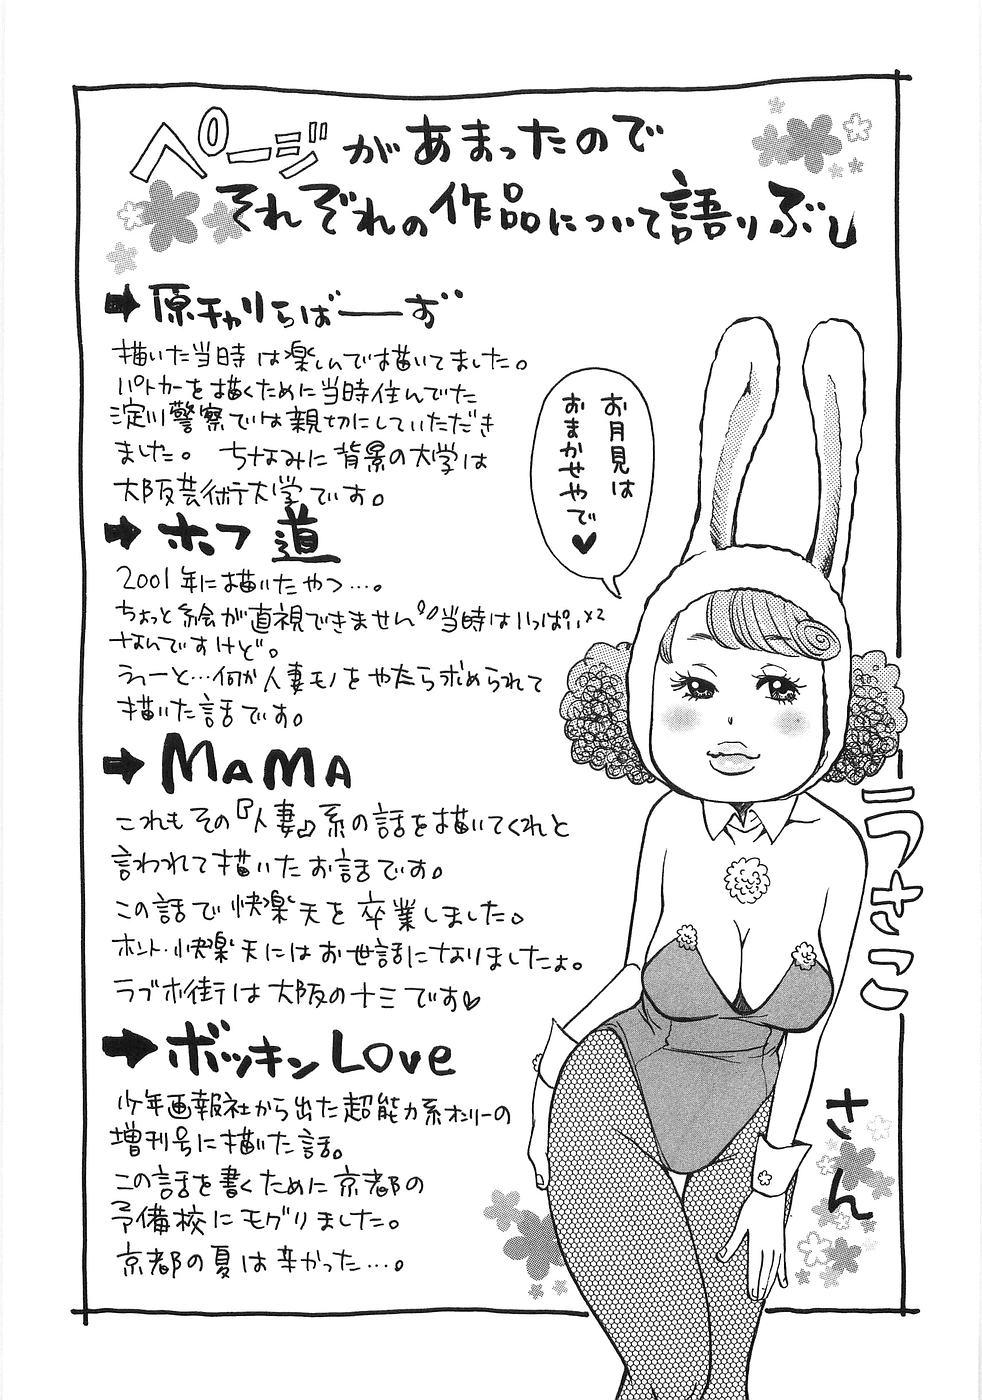 ページがあまったので
それぞれの作品について語りぶし
➡原チャリらばーーず
描いた当時は楽しんで描いてました。
パトカーを描くために当時住んでた
淀川警察では親切にしていただき
ました。 ちなみに背景の大学は
大阪芸術大学です。
➡ホフ道
2001年に描いたやつ…。
ちょっと絵が直視できません゜゜当時はいっぱい×2
なんですけど。
うーーと…何か人妻モノをやたら求められて
描いた話です。
➡MAMA
これもその『人妻』系の話を描いてくれと
言われて描いたお話です。
この話で快楽天を卒業しました。
ホント、快楽天にはお世話になりましたよ。
ラブホ街は大阪の十三です♡
➡ボッキンLove
少年画報社から出た超能力系オンリーの
増刊号に描いた話。
この話を書くために京都の
予備校にモグりました。
京都の夏は辛かった…。
お月見は
おまかせやで♥
うさこ
さん